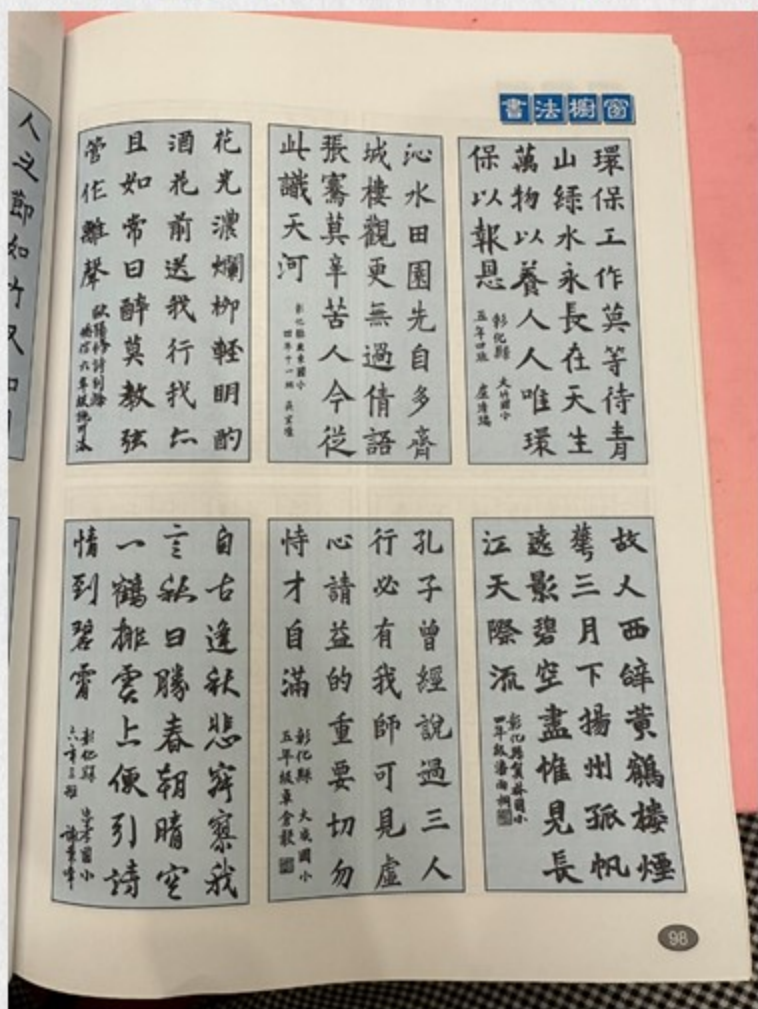 書法櫥窗
環保工作莫等待青
山綠水永長在天生
萬物以養人人唯環
保以報恩
彰化縣 大竹國小
五年四班 盧
沁水田園先自多齊
城樓觀更無過倩語
張騫莫辛苦人今從
此識天河
彰化縣 東國小
四年十一班 吳
花光濃爛柳輕明酌
酒花前送我行我亦
且如常日醉莫教弦
管作離聲
歐陽修詩別滁
六年級
故人西辭黃鶴樓煙
華三月下揚州孤帆
遠影碧空盡惟見長
江天際流
彰化縣員林國小
四年級潘雨桐
孔子曾經說過三人
行必有我師可見虛
心請益的重要切勿
恃才自滿
彰化縣 大成國小
五年級卓倉毅
自古逢秋悲寂寥我
言秋日勝春朝晴空
一鶴排雲上便引詩
情到碧霄
彰化縣 忠孝國小
六年三班 謝
人之節如竹又如
98